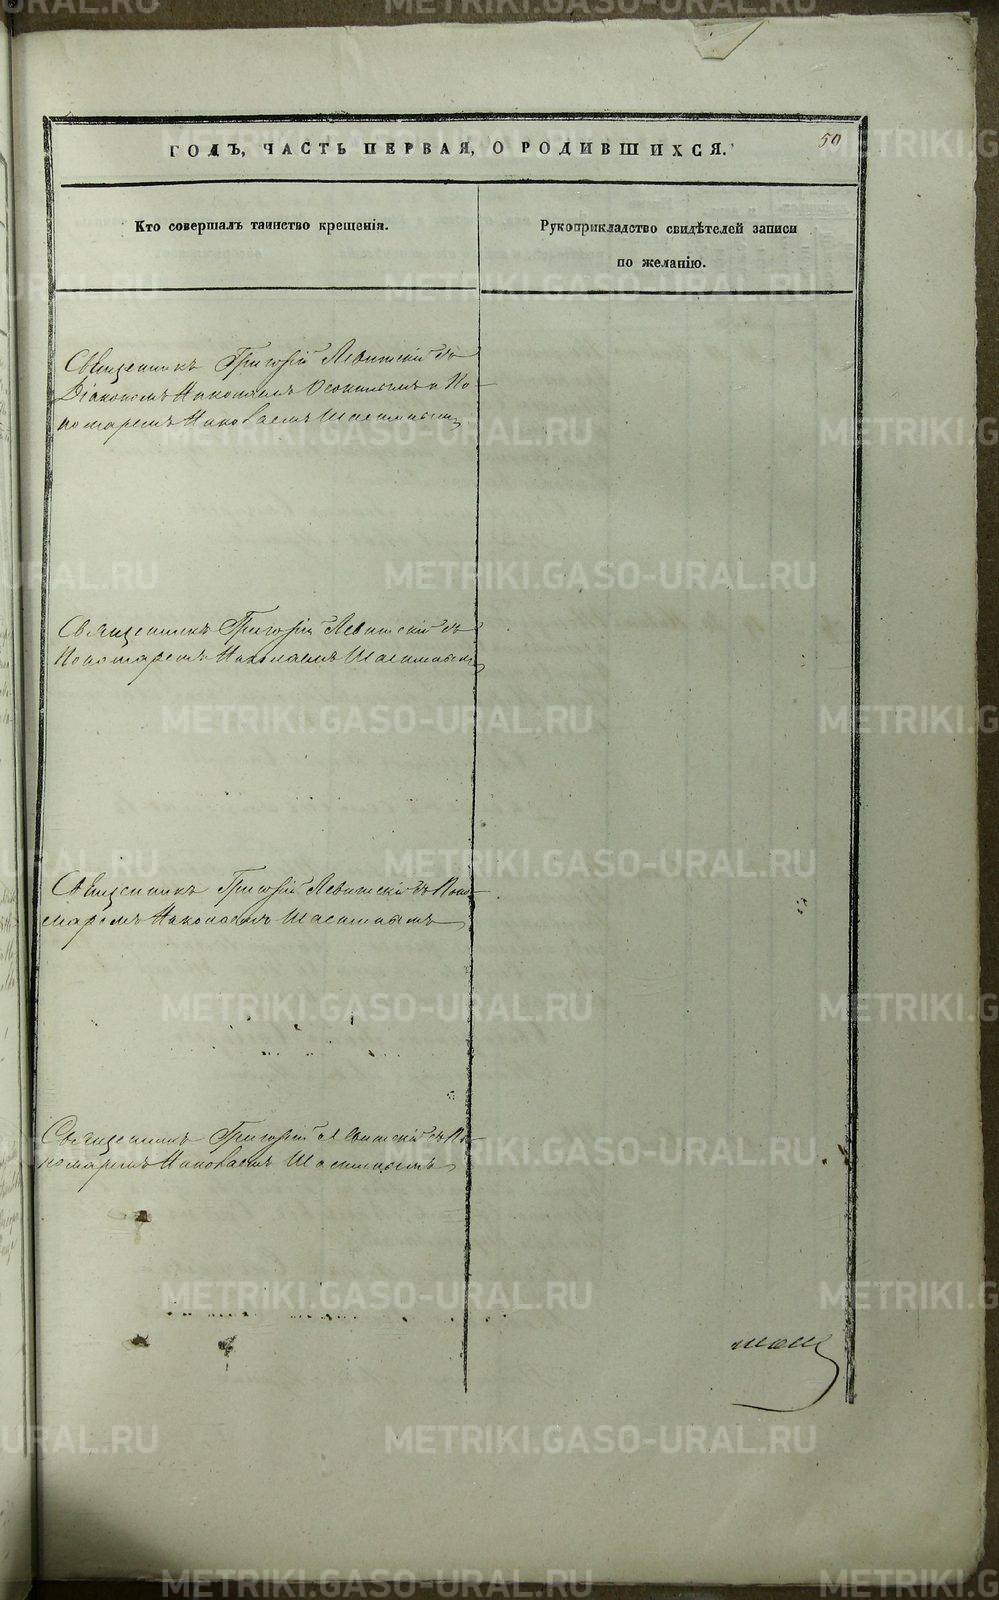 ГОДЪ, ЧАСТЬ ПЕРВАЯ, О РОДИВШИХСЯ.
50
Кто совершалъ таинство крещенія.
Рукоприкладство свидѣтелей записи
по желанію.
Священникъ Григорій Левитскій съ
Діакономъ Николаемъ и По-
номаремъ Николаемъ
Священникъ Григорій Левитскій съ
Пономаремъ Николаемъ
Священникъ Григорій Левитскій съ Поно-
маремъ Николаемъ
Священникъ Григорій Левитскій съ По-
номаремъ Николаемъ
METRIKI.GASO-URAL.RU